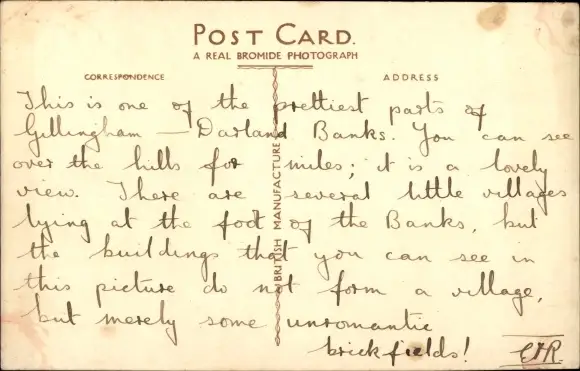 POST CARD.
A REAL BROMIDE PHOTOGRAPH
CORRESPONDENCE
ADDRESS
BRITISH MANUFACTURE
This is one of the prettiest parts of
Gillingham — Darland Banks. You can see
over the hills for miles; it is a lovely
view. There are several little villages
lying at the foot of the Banks, but
the buildings that you can see in
this picture do not form a village,
but merely some unromantic
brickfields!